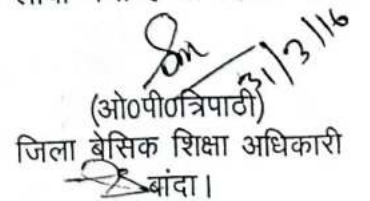 31/3/16
(ओ0पी0त्रिपाठी)
जिला बेसिक शिक्षा अधिकारी
बांदा।